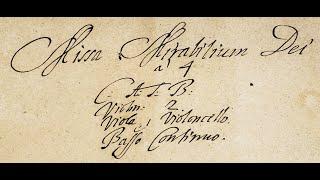 Missa Mirabilium Dei
a 4
C: A: T: B:
Violin: 2
Viola, 1 Violoncello.
Basso Continuo.